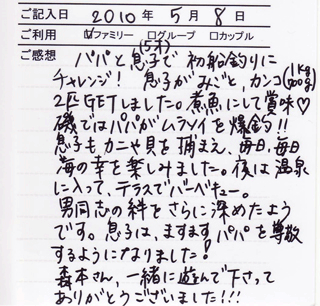 ご記入日 2010年 5月 8日
ご利用 ☑ファミリー □グループ □カップル
ご感想
パパと息子(5才)で初船釣りに
チャレンジ! 息子がみごと、カンコ(1kg 900g)
2匹GETしました。煮魚にして賞味♡
磯ではパパがムラソイを爆釣!!
息子もカニや貝を捕まえ、毎日、毎日
海の幸を楽しみました。夜は温泉
に入って、テラスでバーベキュー。
男同志の絆をさらに深めたよう
です。息子は、ますますパパを尊敬
するようになりました!
森本さん、一緒に遊んで下さって
ありがとうございました!!!